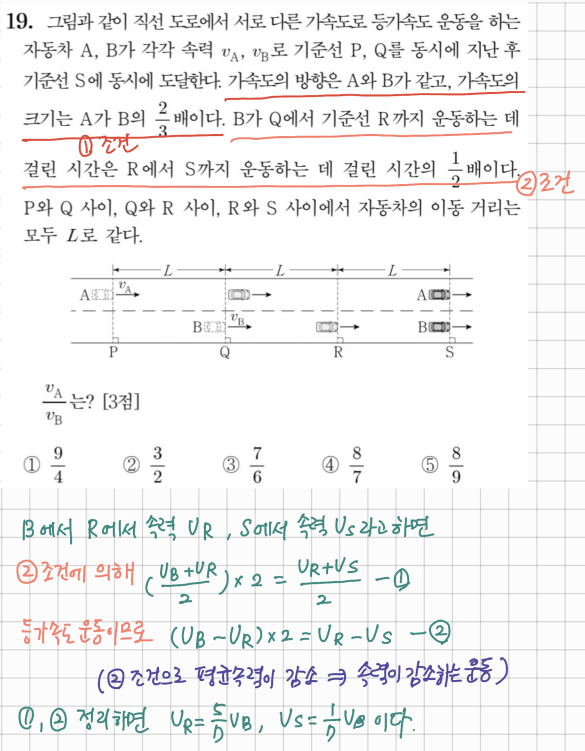 19. 그림과 같이 직선 도로에서 서로 다른 가속도로 등가속도 운동을 하는
자동차 A, B가 각각 속력 v_A, v_B로 기준선 P, Q를 동시에 지난 후
기준선 S에 동시에 도달한다. 가속도의 방향은 A와 B가 같고, 가속도의
크기는 A가 B의 2/3배이다. B가 Q에서 기준선 R까지 운동하는 데
① 조건
걸린 시간은 R에서 S까지 운동하는 데 걸린 시간의 1/2배이다.
②조건
P와 Q 사이, Q와 R 사이, R와 S 사이에서 자동차의 이동 거리는
모두 L로 같다.
L L L
A v_A A
B v_B B
P Q R S
v_A/v_B 는? [3점]
① 9/4 ② 3/2 ③ 7/6 ④ 8/7 ⑤ 8/9
B에서 R에서 속력 V_R, S에서 속력 V_S라고하면
②조건에 의해 ((V_B+V_R)/2)×2 = (V_R+V_S)/2 -①
등가속도 운동이므로 (V_B-V_R)×2 = V_R-V_S -②
(② 조건으로 평균속력이 감소 ⇒ 속력이 감소하는 운동)
①,② 정리하면 V_R=5/7V_B, V_S=1/7V_B 이다.